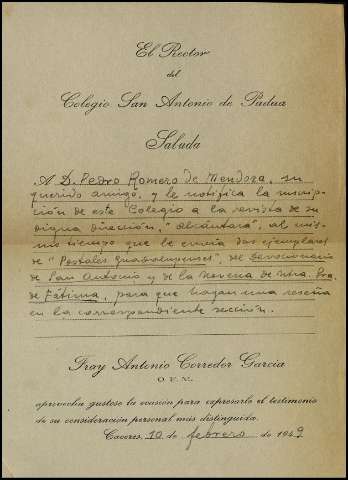 El Rector
del
Colegio San Antonio de Padua
Saluda
A D. Pedro Romero de Mendoza, su
querido amigo, y le notifica la inscrip-
ción de este Colegio a la revista de su
digna dirección, "Alcántara", al mis-
mo tiempo que le envía dos ejemplares
de "Postales Guadalupenses", del Devocionario
de San Antonio y de la Novena de Ntra. Sra.
de Fátima, para que hagan una reseña
en la correspondiente sección.
Fray Antonio Corredor García
O. F. M.
aprovecha gustoso la ocasión para expresarle el testimonio
de su consideración personal más distinguida.
Cáceres, 10 de febrero de 1949